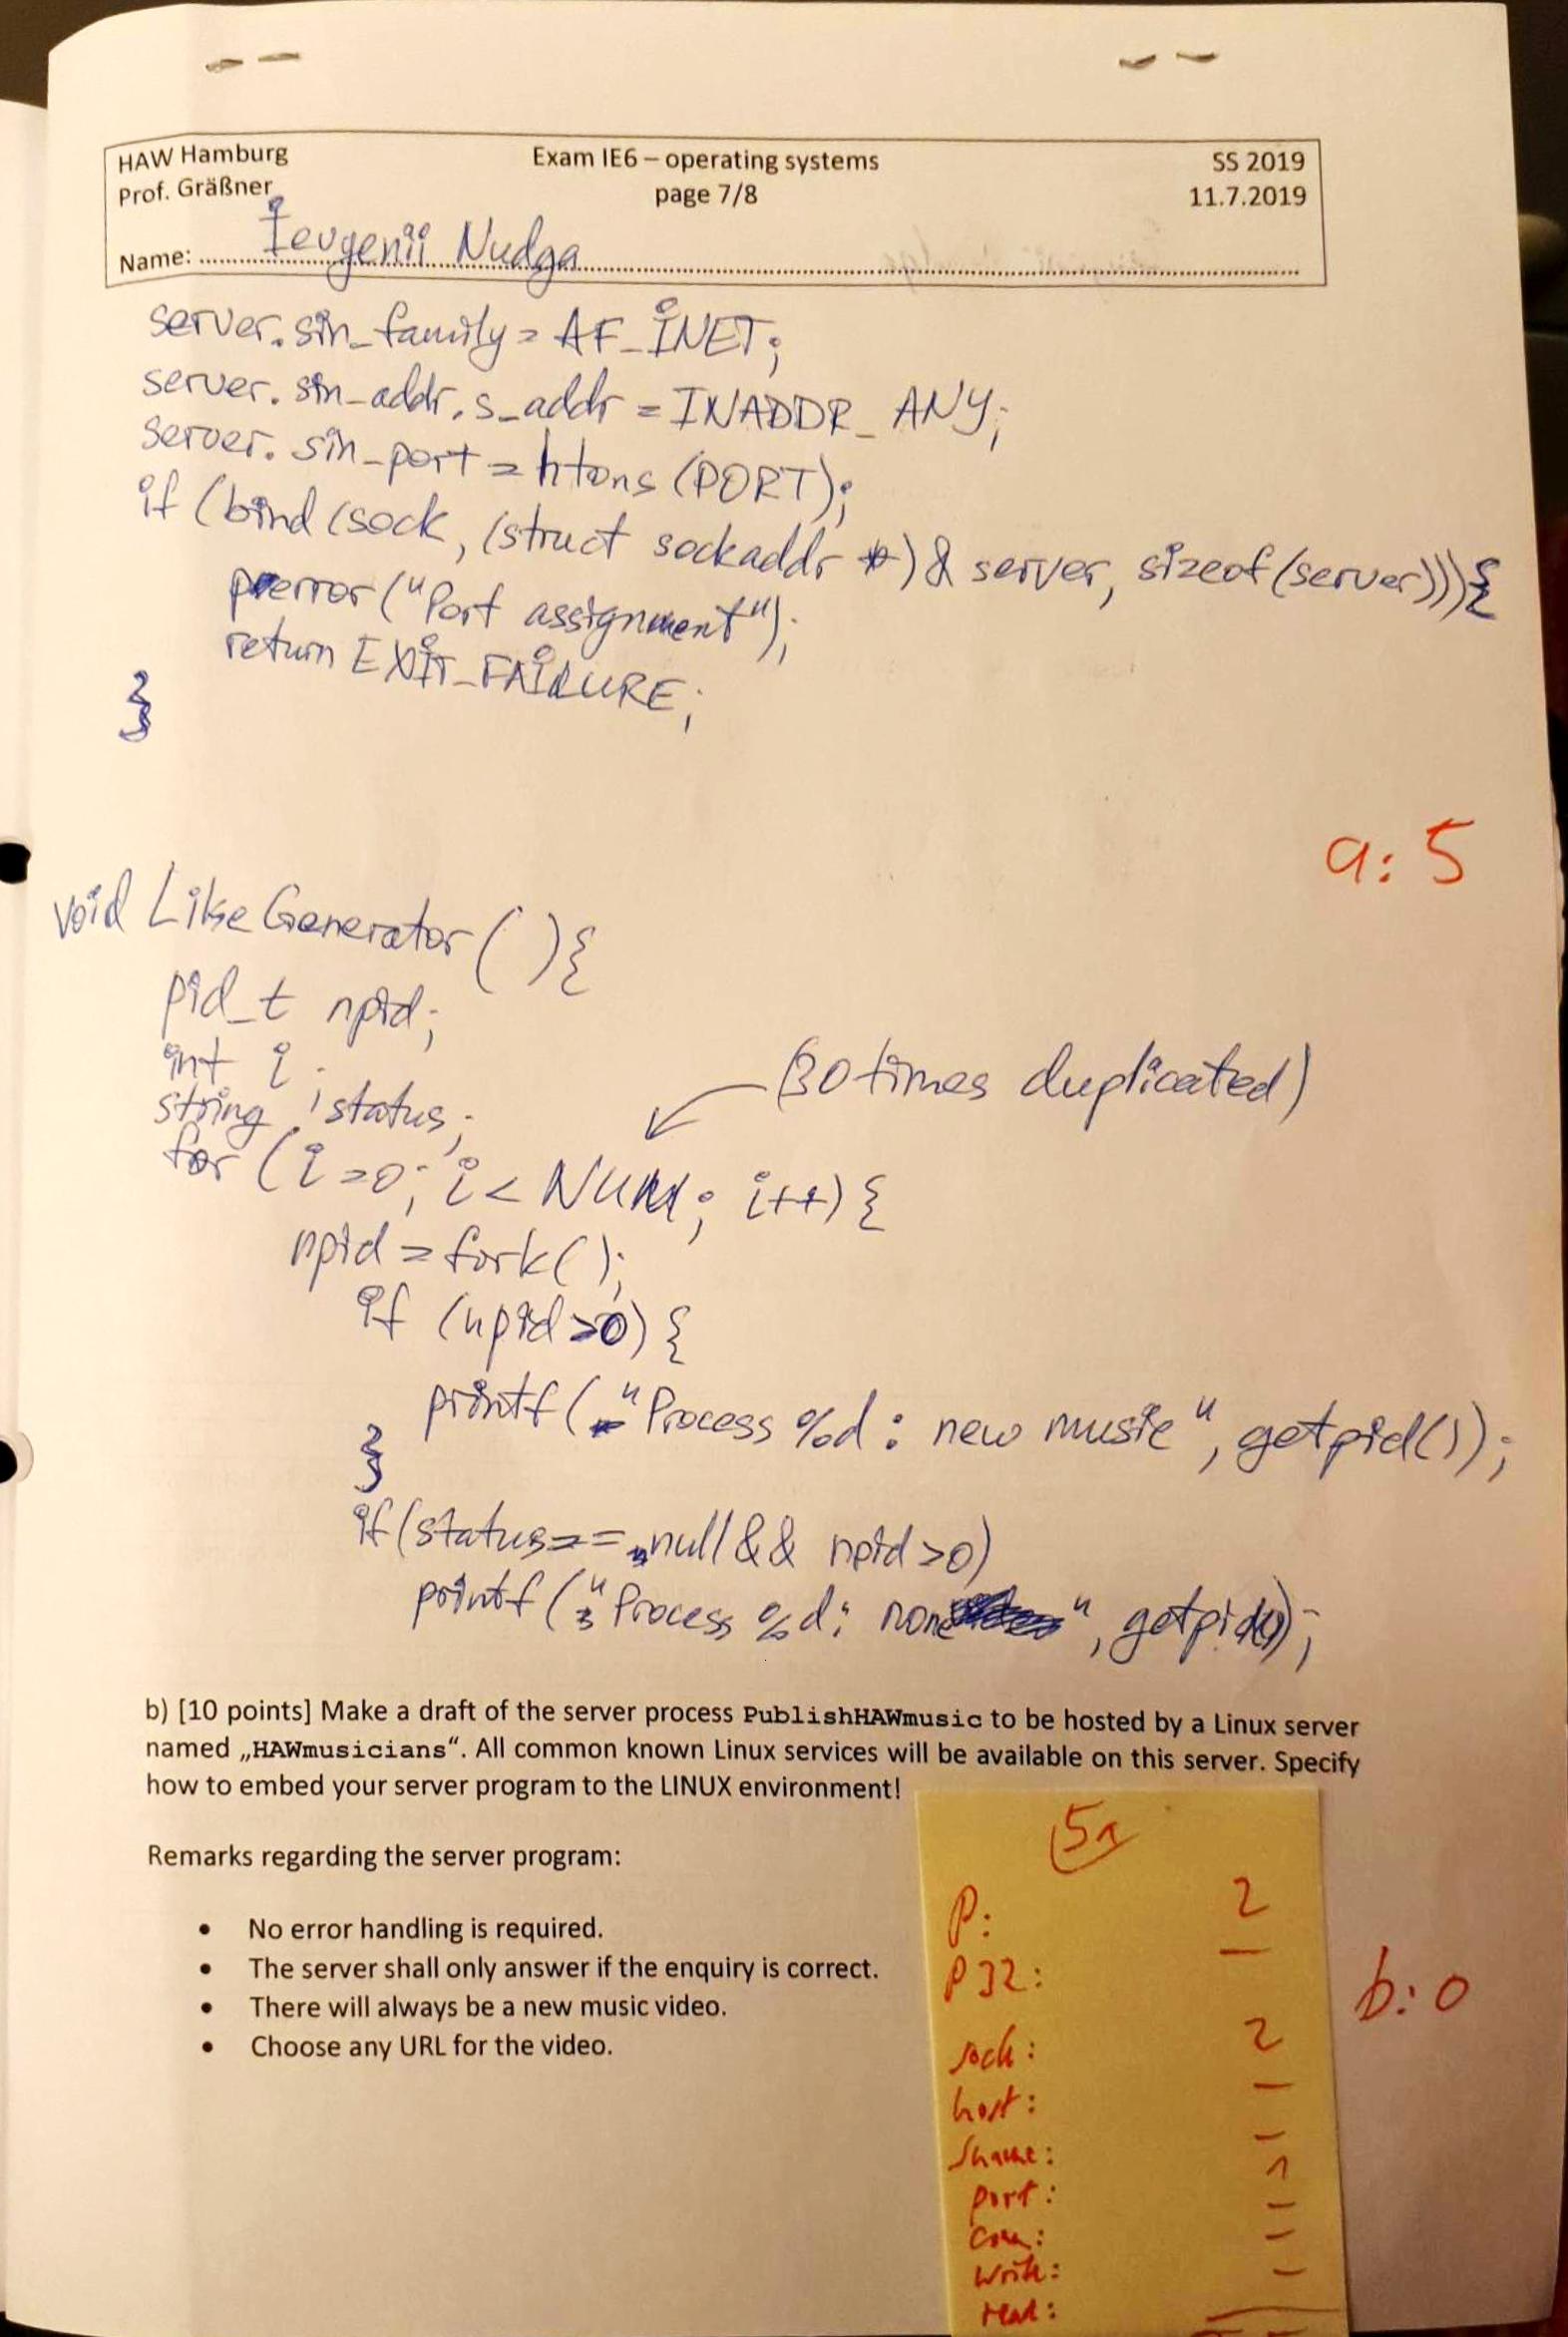 HAW Hamburg
Exam IE6 – operating systems
SS 2019
Prof. Gräßner
page 7/8
11.7.2019
Name: Ievgenii Nudga
server.sin_family = AF_INET;
server.sin_addr.s_addr = INADDR_ANY;
server.sin_port = htons (PORT);
if (bind (sock, (struct sockaddr *) & server, sizeof (server))){
perror ("Port assignment");
return EXIT_FAILURE;
}
a: 5
void LikeGenerator ( ) {
pid_t npid;
int i;
string status;
(30 times duplicated)
for (i=0; i < NUM; i++) {
npid = fork ( );
if (npid>0) {
printf ("Process %d : new music", getpid());
}
if (status == null && npid >0)
printf ("Process %d: none", getpid());
b) [10 points] Make a draft of the server process PublishHAWmusic to be hosted by a Linux server
named „HAWmusicians“. All common known Linux services will be available on this server. Specify
how to embed your server program to the LINUX environment!
Remarks regarding the server program:
• No error handling is required.
• The server shall only answer if the enquiry is correct.
• There will always be a new music video.
• Choose any URL for the video.
b: 0
P: 2
P32: –
sock: 2
host: –
Sname: –
port: 1
com: –
write: –
read: –